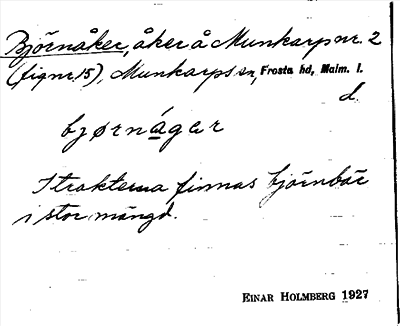 Björnåker, åker å Munkarp nr. 2
(fig nr 15), Munkarps sn, Frosta hd, Malm. l.
d.
bjørnágɛr
I trakterna finnas björnbär
i stor mängd.
EINAR HOLMBERG 1927